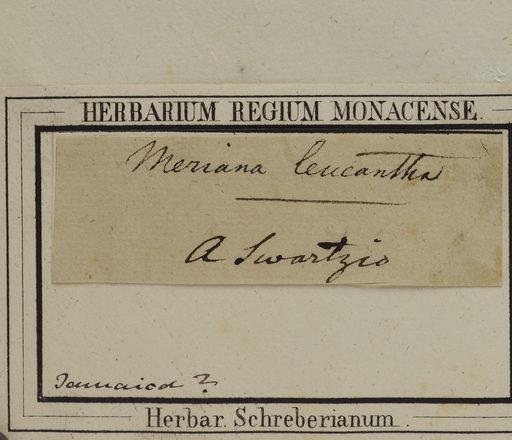 HERBARIUM REGIUM MONACENSE.
Meriana leucantha
A Swartzio
Jamaica ?
Herbar. Schreberianum.